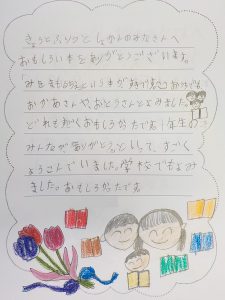 きょうとふりつとしょかんのみなさんへ
おもしろい本をありがとうございます。
「みをまもる」という本が好きで、おうちでも
おかあさんや、おとうさんとよみました。
どれもおもしろかったです。1年生の
みんなが「ありがとう」といって、すごく
よろこんでいました。学校でもよみ
ました。おもしろかったです